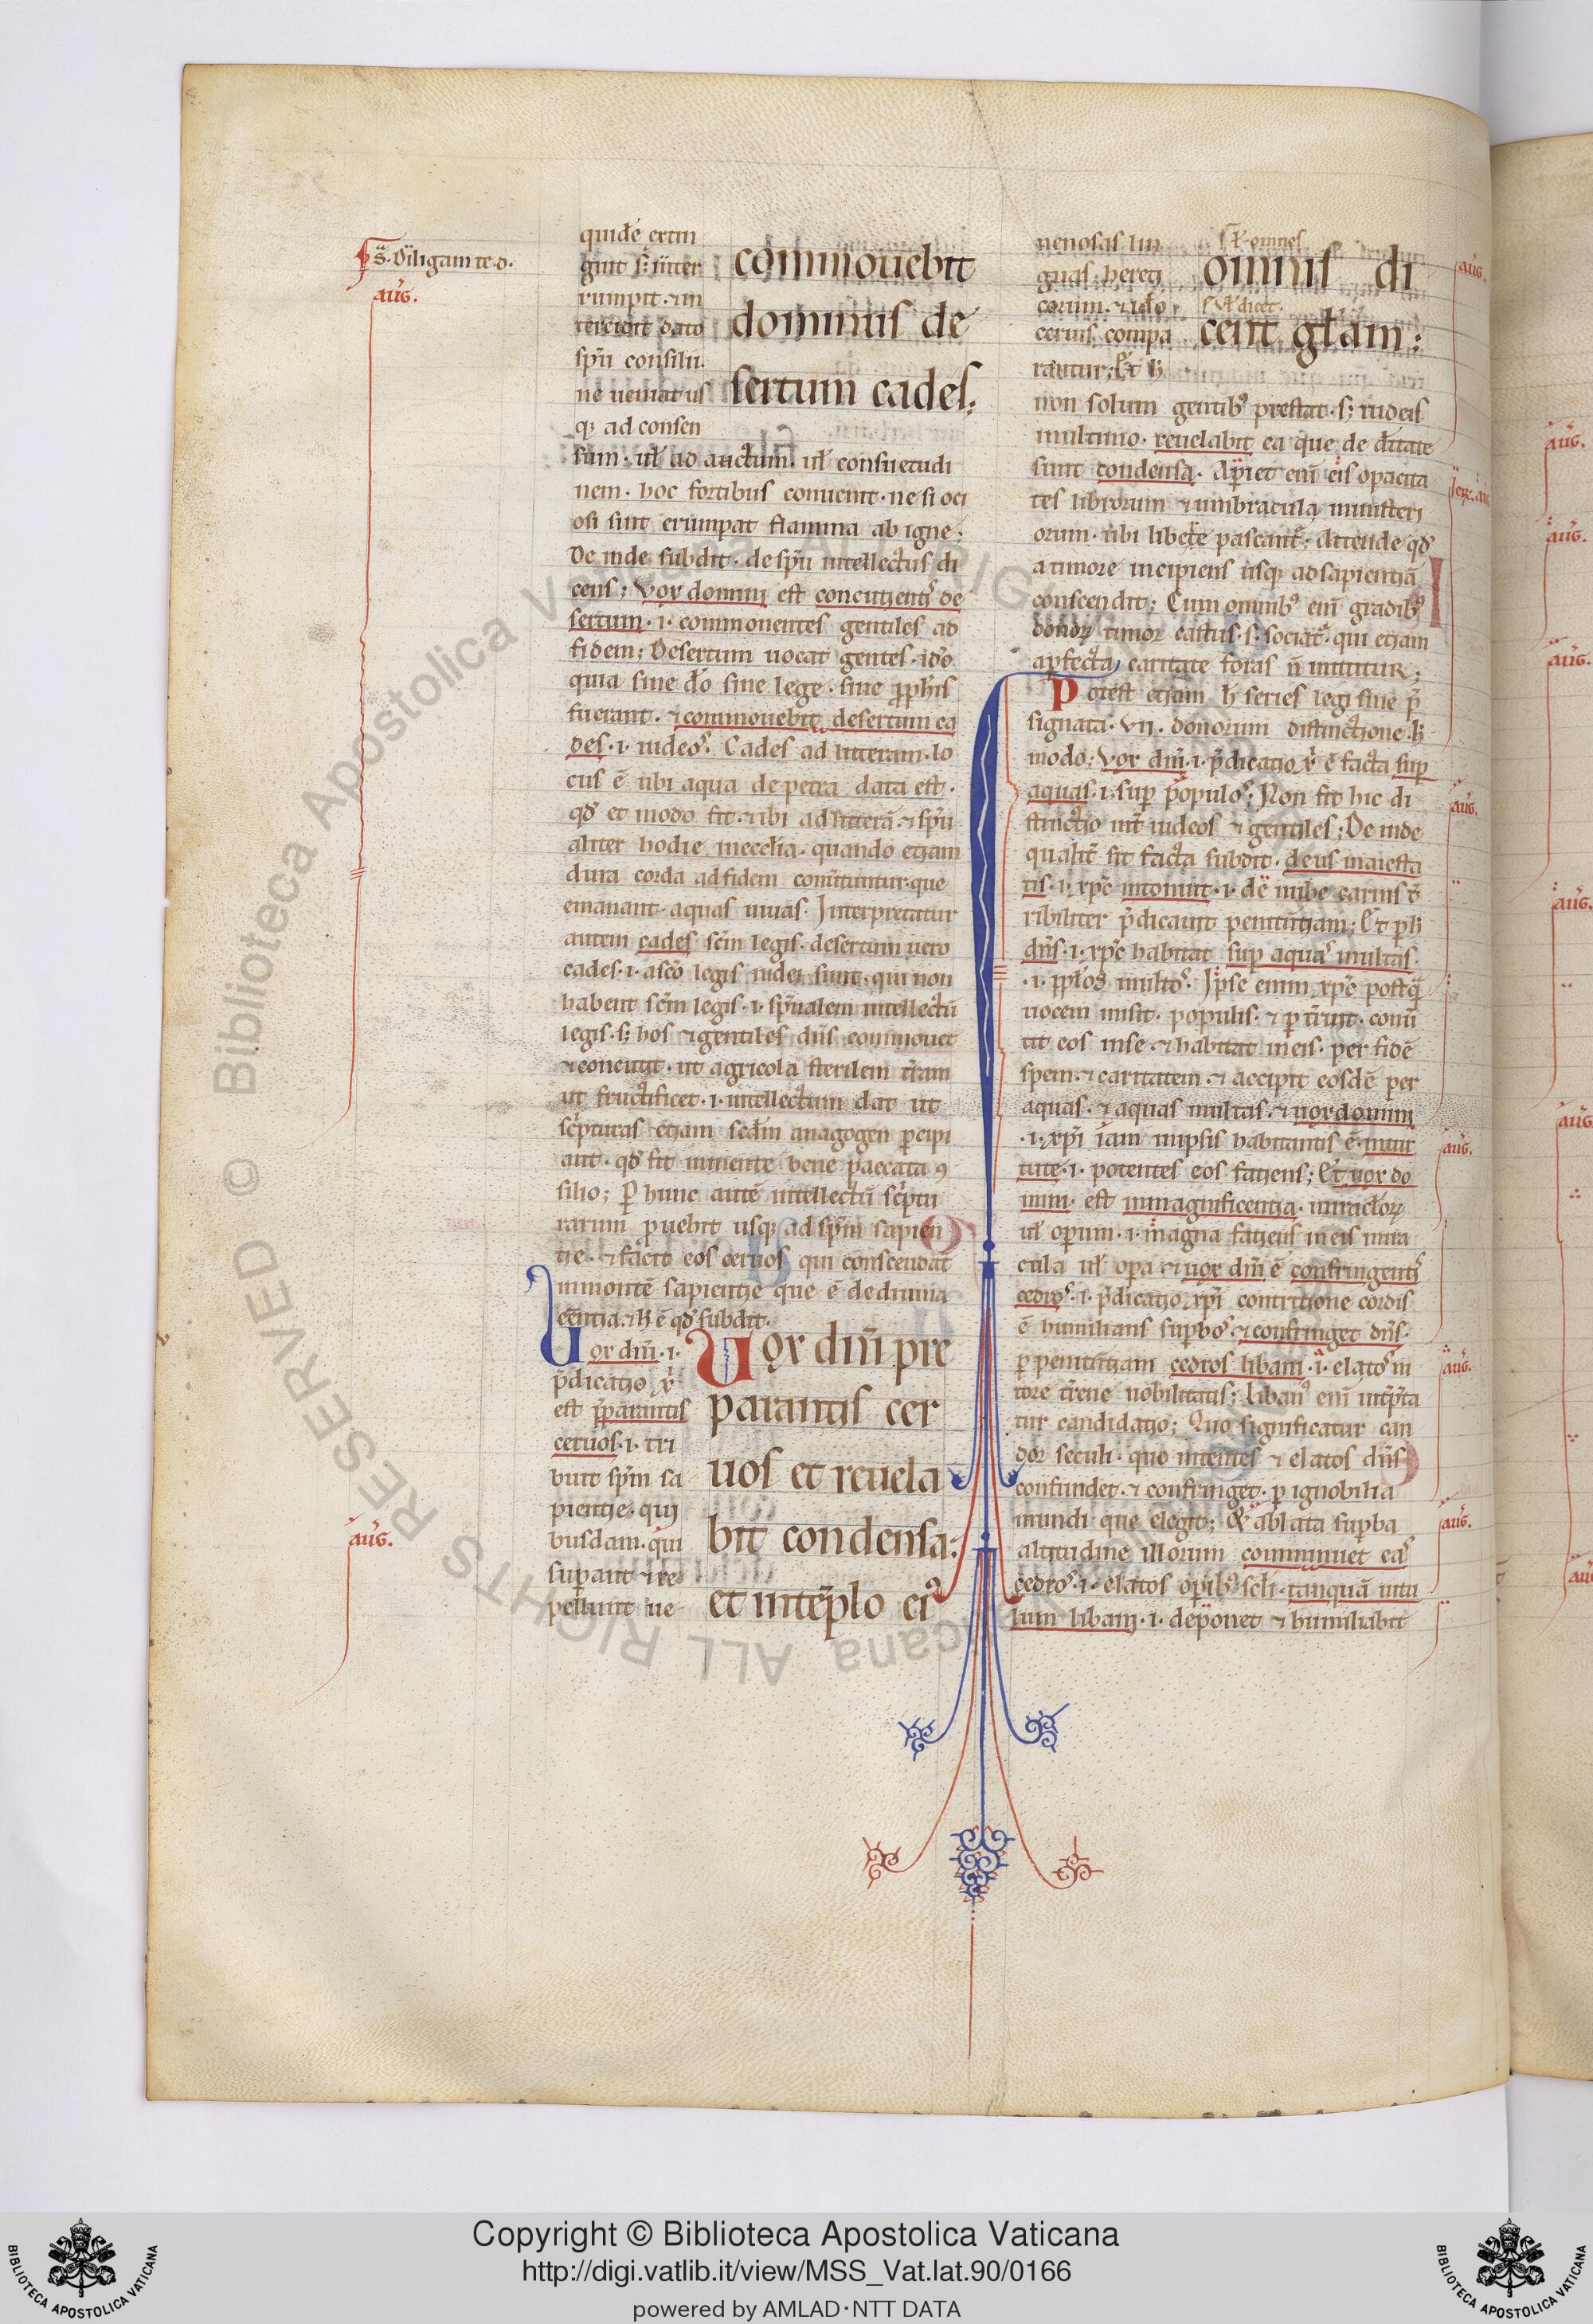 S. Diligam te. d.
aug.
quidē extin
guit s; inter
rumpit ⁊ in
tercidit dato
spū consilii.
ne ueniat us
q; ad consen
commouebit
dominus de
sertum cades;
sum. ul' ad auctum. ul' consuetudi
nem. hoc fortibus conuenit. ne si oci
osi sint erumpat flamma ab igne;
De inde subdit. de spū intellectus di
cens; Vox domini est concutientis de
sertum .i. commonentes gentiles ad
fidem; Desertum uocat gentes. ido
quia sine do sine lege. sine pphis
fuerant. ⁊ commouebit desertum ca
des .i. iudeos. Cades ad litteram. lo
cus ē ubi aqua de petra data est.
qd et modo fit. ⁊ ibi ad litterā. ⁊ spū
aliter hodie in ecclia. quando etiam
dura corda ad fidem conūtuntur. que
emanant. aquas uiuas. Interpretatur
autem cades scm legis. desertum uero
cades .i. a sco legis iudei sunt. qui non
habent scm legis .i. spūalem intellectū
legis. s; hos ⁊ gentiles dns commouet
⁊ concutit. ut agricola sterilem tram
ut fructificet .i. intellectum dat ut
scpturas etiam sedm anagogen pcipi
ant. qd fit in mente bene paccata 9
silio; P hunc autē intellectū scptu
rarum puehit usq; ad spm sapien
tie. ⁊ facit eos ceruos qui conscendāt
in montē sapientie que ē de diuina
eentia. ⁊ h ē qd subdit.
Uox dni .i.
pdicatio x
est pparantis
ceruos .i. tri
buit spm sa
pientie. qui
busdam. qui
supant ⁊ re
pellunt ue
aug.
Uox dni pre
parantis cer
uos et reuela
bit condensa:
et in templo ei9
nenosas lin
guas. hereti
corum. ⁊ ido
ceruis compa
rantur; Et h
ul' omnes
omnis di
ul' dicet.
cent glam;
aug.
non solum gentib9 prestat. s; iudeis
in ultimo. reuelabit ea que de ditate
sunt condensa. Apiet eni eis opacita
tes librorum ⁊ umbracula misteri
orum. ubi libere pascant; Attende qd
a timore incipiens usq; ad sapientiā
conscendit; Cum omnib9 eni gradib9
donoꝝ timor castus .s. sociat. qui etiam
a pfecta caritate foras n mittitur;
Potest etiam h series legi siue p
signata .vii. donorum distinctione. h
modo; Vox dni .i. pdicatio x ē facta sup
aquas .i. sup populos; Non fit hic di
stinctio int iudeos ⁊ gentiles; De inde
qualit sit facta subdit. deus maiesta
tis .i. xpc intonuit .i. de nube carnis t
ribiliter pdicauit penitntiam; Et p h
dns .i. xpc habitat sup aquas multas.
.i. pplos multos. Ipse enim xpc postq
uocem misit. populis. ⁊ p truit. conu
tit eos in se. ⁊ habitat in eis. per fidē
spem. ⁊ caritatem. ⁊ accipit eosdē per
aquas. ⁊ aquas multas. ⁊ uox domini
.i. xpi iam in ipsis habitantis ē. in uir
tute .i. potentes eos faciens; Et uox do
mini. est in magnificentia. miracloꝝ
ul' operum .i. magna faciens in eis mira
cula ul' opa ⁊ uox dni ē confringentis
cedros .i. pdicatio xpi contritione cordis
ē humilians supbos. ⁊ confringet dns.
p penitntiam cedros libani .i. elatos ni
tore trene nobilitatis; Liban9 eni intpta
tur candidatio; Quo significatur can
dor seculi. quo nitentes ⁊ elatos dns
confundet. ⁊ confringet. p ignobilia
mundi que elegit; Et ablata supba
altitudine illorum comminuet eas
cedros .i. elatos opib9 scli. tanquā uitu
lum libani .i. deponet ⁊ humiliabit
Ier. aug.
aug.
aug.
aug.
aug.
aug.
aug.
aug.
aug.
aug.
Copyright © Biblioteca Apostolica Vaticana
http://digi.vatlib.it/view/MSS_Vat.lat.90/0166
powered by AMLAD·NTT DATA
BIBLIOTECA APOSTOLICA VATICANA
BIBLIOTECA APOSTOLICA VATICANA
© Biblioteca Apostolica Vaticana ALL RIGHTS RESERVED